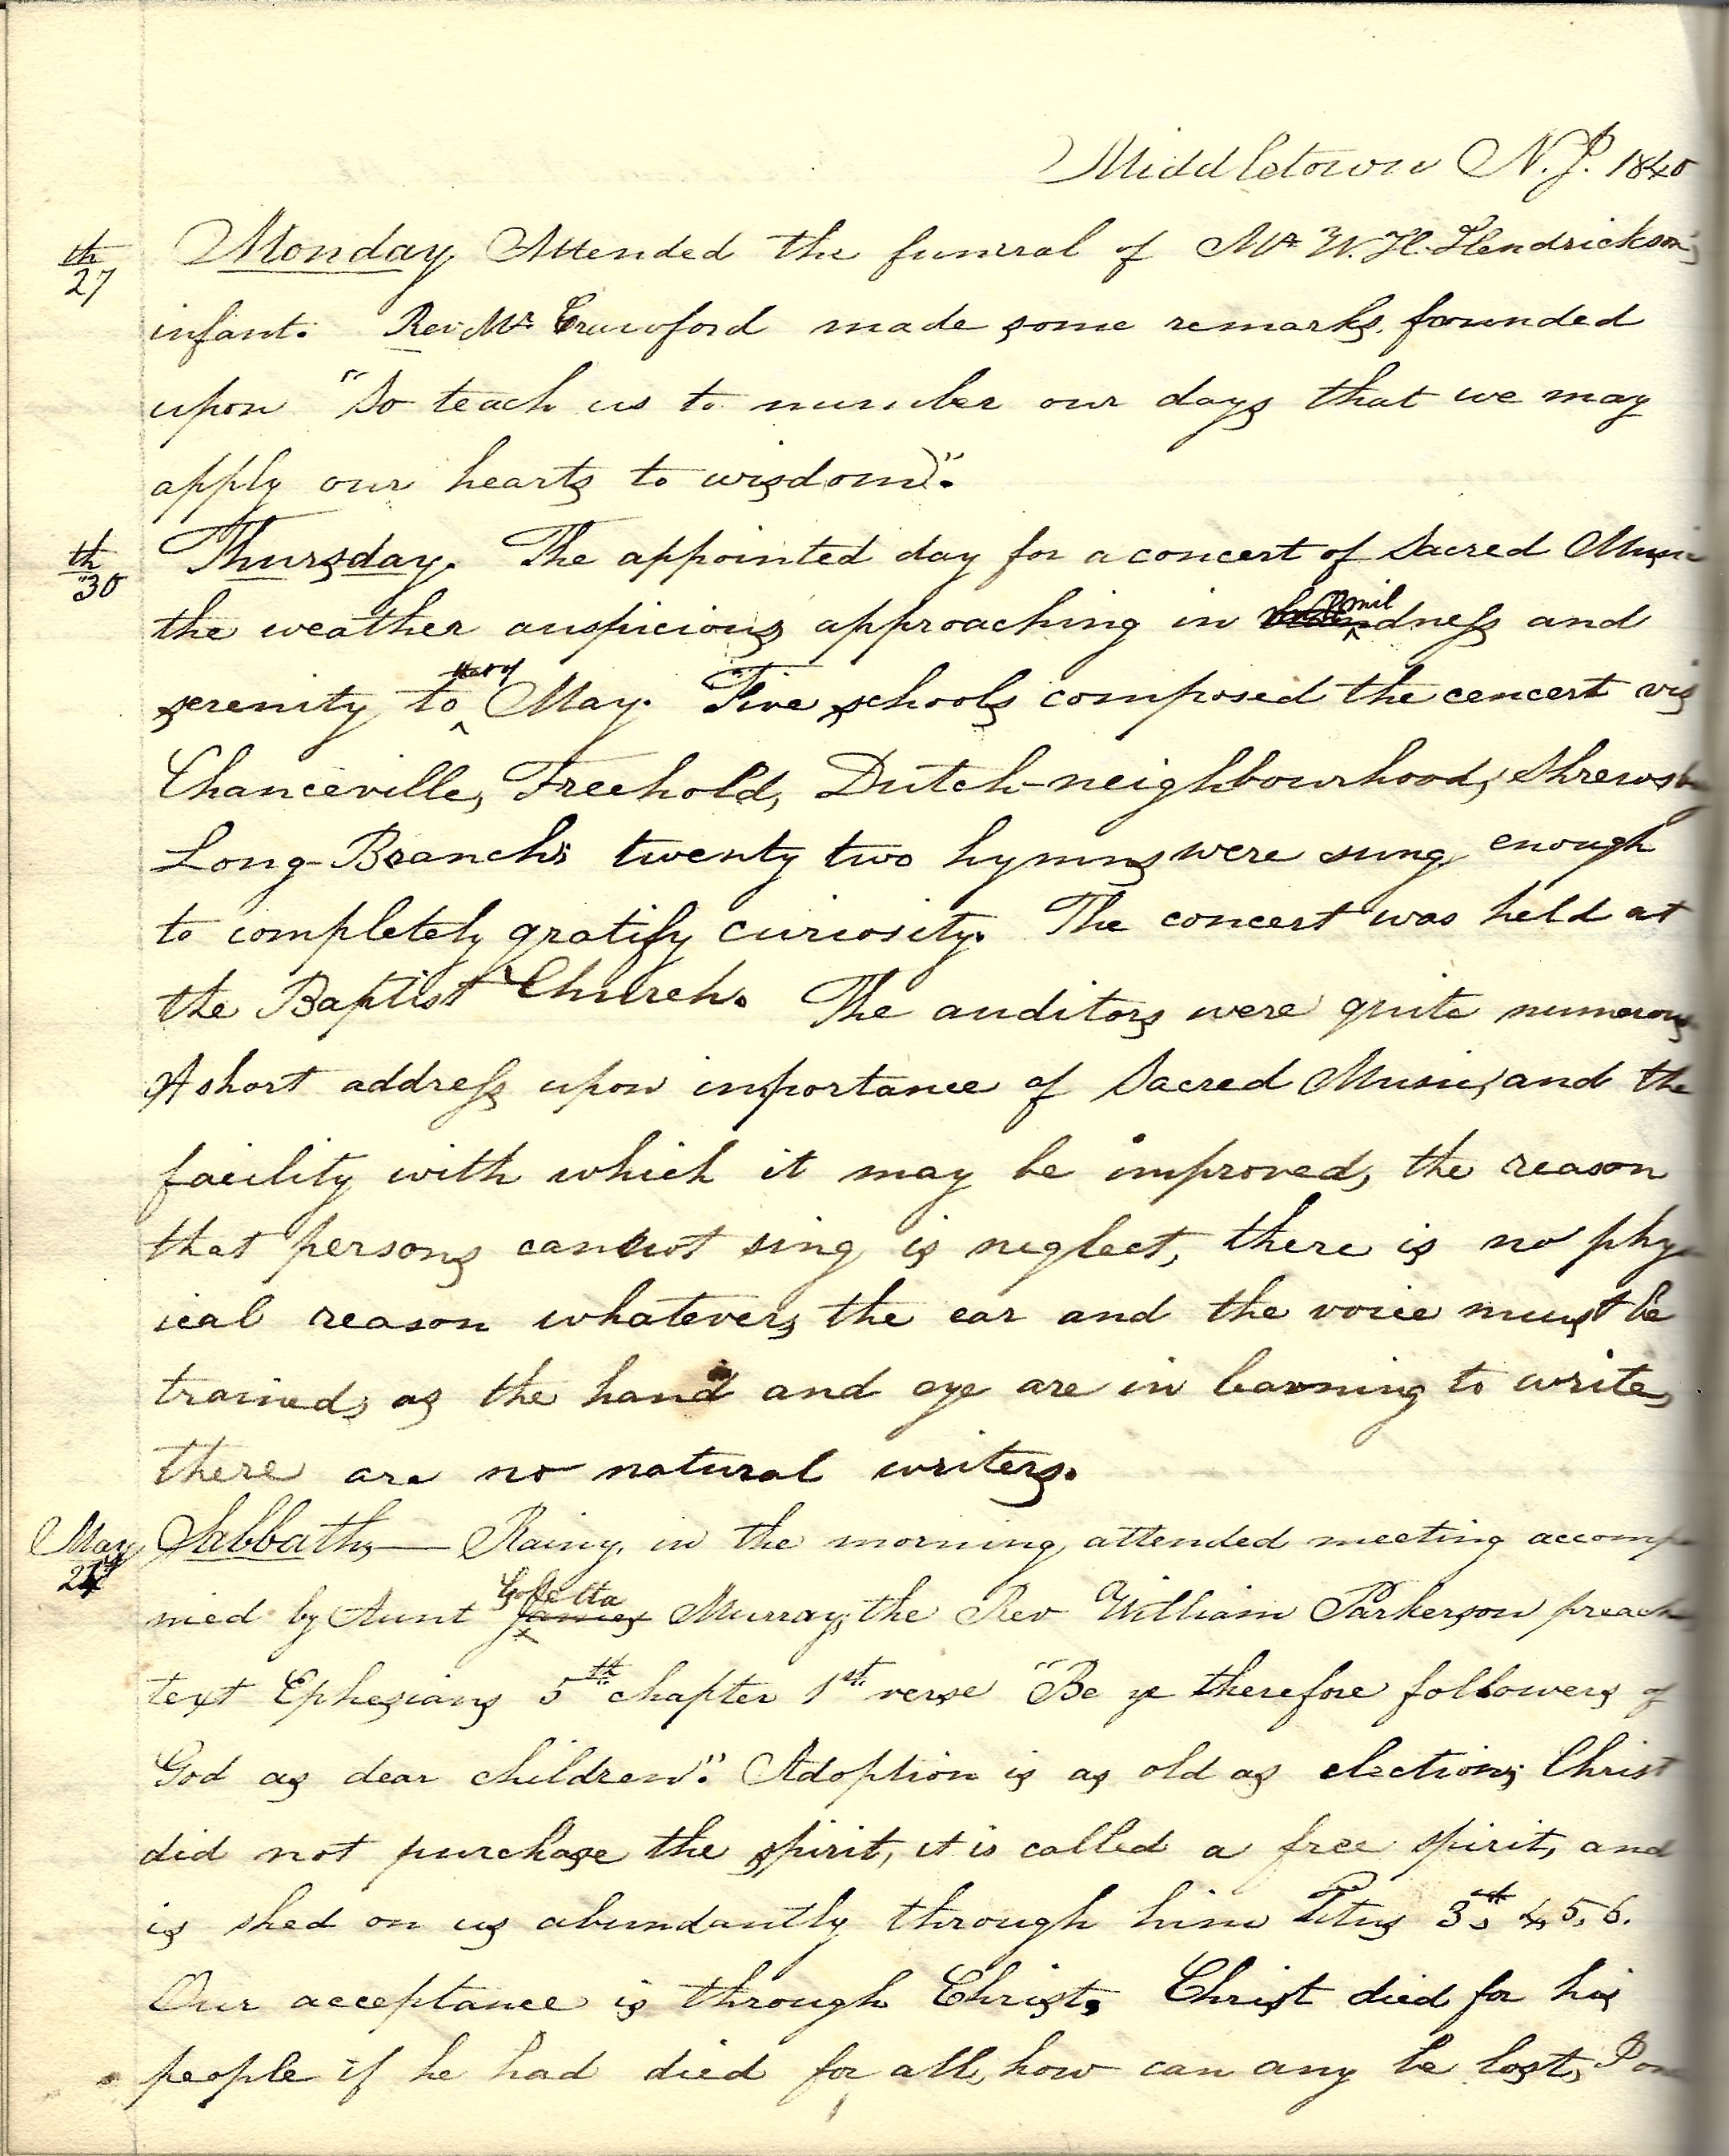 Middletown N.J. 1840
th
27
Monday Attended the funeral of Mr. W. H. Hendrickson's
infant. Rev. Mr. Crawford made some remarks, founded
upon "So teach us to number our days that we may
apply our hearts to wisdom".
th
30
Thursday. The appointed day for a concert of Sacred Musi
the weather auspicious approaching in mildness and
serenity to that of May. Five schools composed the concert vis
Chanceville, Freehold, Dutch-neighbourhood, Shrewsb
Long-Branch; twenty two hymns were sung, enough
to completely gratify curiosity. The concert was held at
the Baptist Church. The auditors were quite numerous
A short address upon importance of Sacred Music, and the
facility with which it may be improved, the reason
that persons cannot sing is neglect, there is no phys
ical reason whatever, the ear and the voice must be
trained, as the hand and eye are in learning to write,
there are no natural writers.
May
Sabbath,— Rainy, in the morning, attended meeting accomp
nied by Aunt James Murray, the Rev William Parkerson preach
text Ephesians 5th chapter 1st verse "Be ye therefore followers of
God as dear children". Adoption is as old as election; Christ
did not purchase the spirit, it is called a free spirit, and
is shed on us abundantly through him Titus 3d, 4, 5, 6.
Our acceptance is through Christ, Christ died for his
people if he had died for all, how can any be lost,